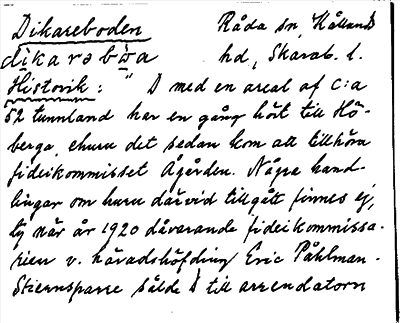 Dikareboden Råda sn, Kållands
dikarəbōa hd, Skarab. l.
Historik: " D med en areal af c:a
52 tunnland har en gång hört till Hö-
berga, ehuru det sedan kom att tillhöra
fideikommisset Ågården. Några hand-
lingar om huru därvid tillgått finnes ej,
ty när år 1920 dåvarande fideikommissa-
rien v. häradshöfding Eric Påhlman-
Stiernsparre sålde D till arrendatorn